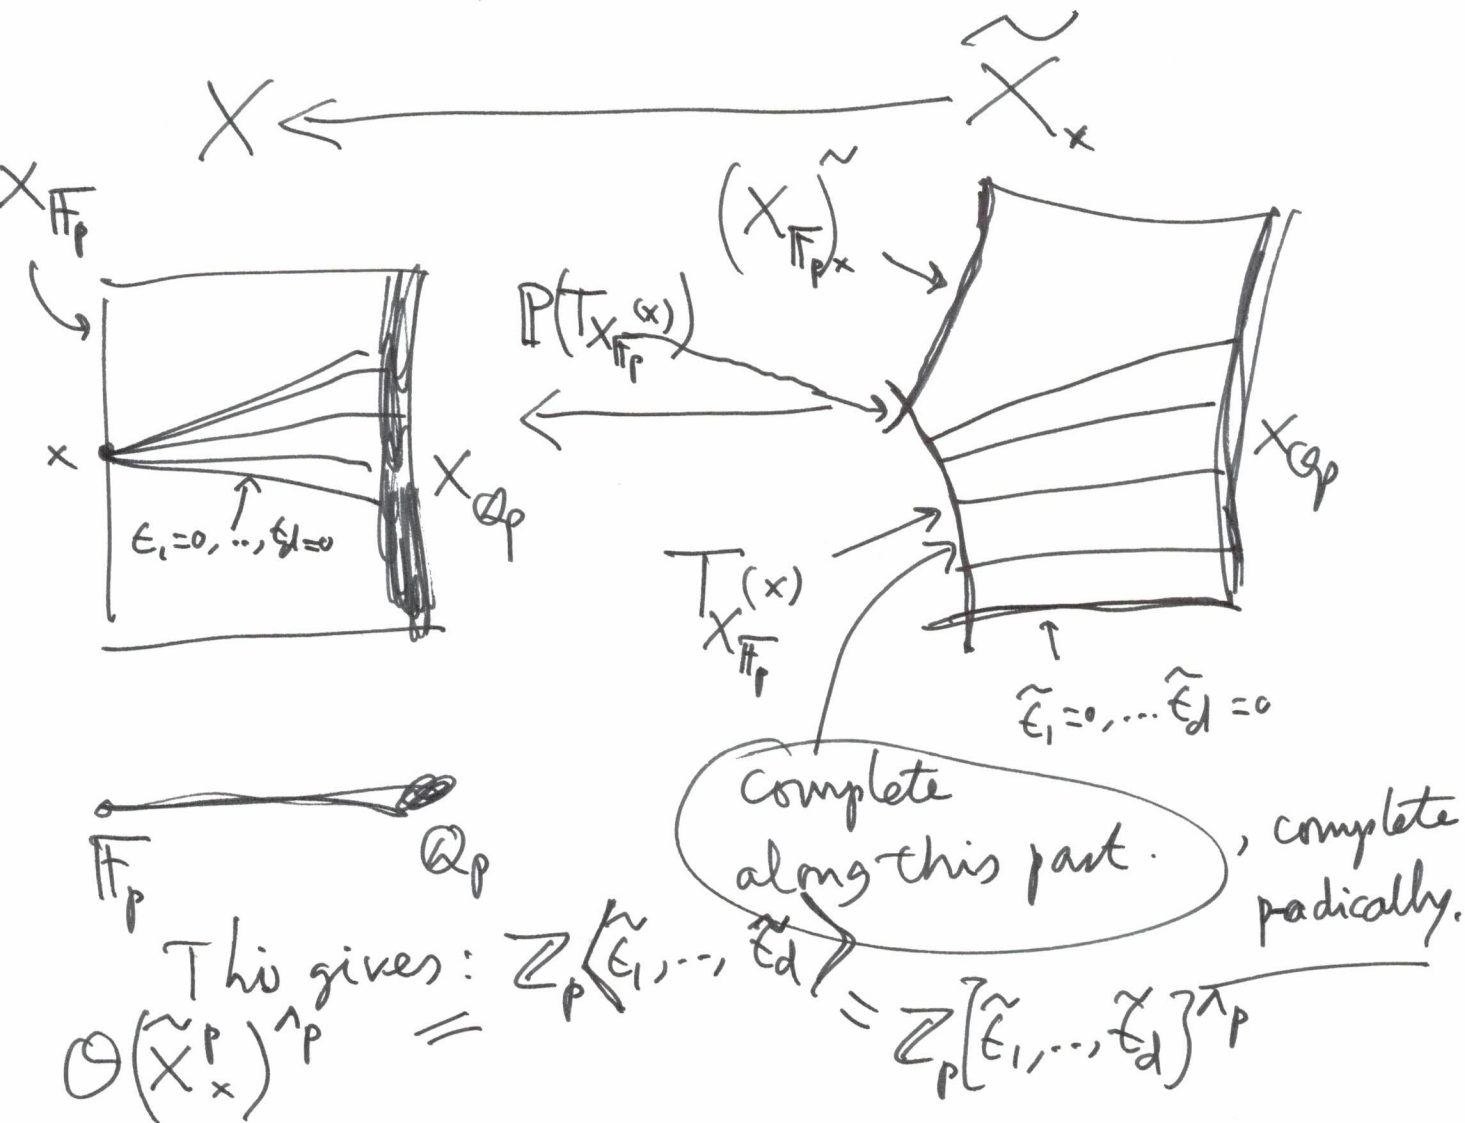 X ← X̃_x
X_{𝔽_p}
(X_{𝔽_p})~_x
ℙ(T_{X_{𝔽_p}}(x))
x
X_{ℚ_p}
t_1=0, .., t_d=0
X_{ℚ_p}
T_{X_{𝔽_p}}(x)
t̃_1=0, ... t̃_d=0
𝔽_p
ℚ_p
complete
along this part.
, complete
p-adically.
This gives: ℤ_p⟨t̃_1, .., t̃_d⟩
𝒪(X̃^p_x)^{∧p} = = ℤ_p[t̃_1, .., t̃_d]^{∧p}